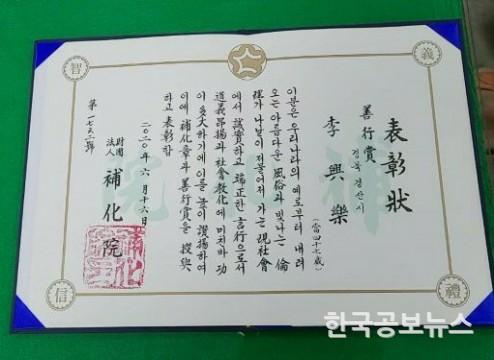 表彰狀
善行賞
경북 경산시
李興樂
(當四十七歲)
이분은 우리나라의 예로부터 내려
오는 아름다운 風俗과 빛나는 倫
理가 나날이 저물어져 가는 現社會
에서 誠實하고 端正한 言行으로서
道義昂揚과 社會敎化에 미치바 功
이 多大하기에 이를 높이 讚揚하여
이에 補化章과 善行賞을 授與
하고 表彰함
二○二○年 六月 十六日
第一七六二號
財團
法人
補化院
智
義
信
禮
한국공보뉴스